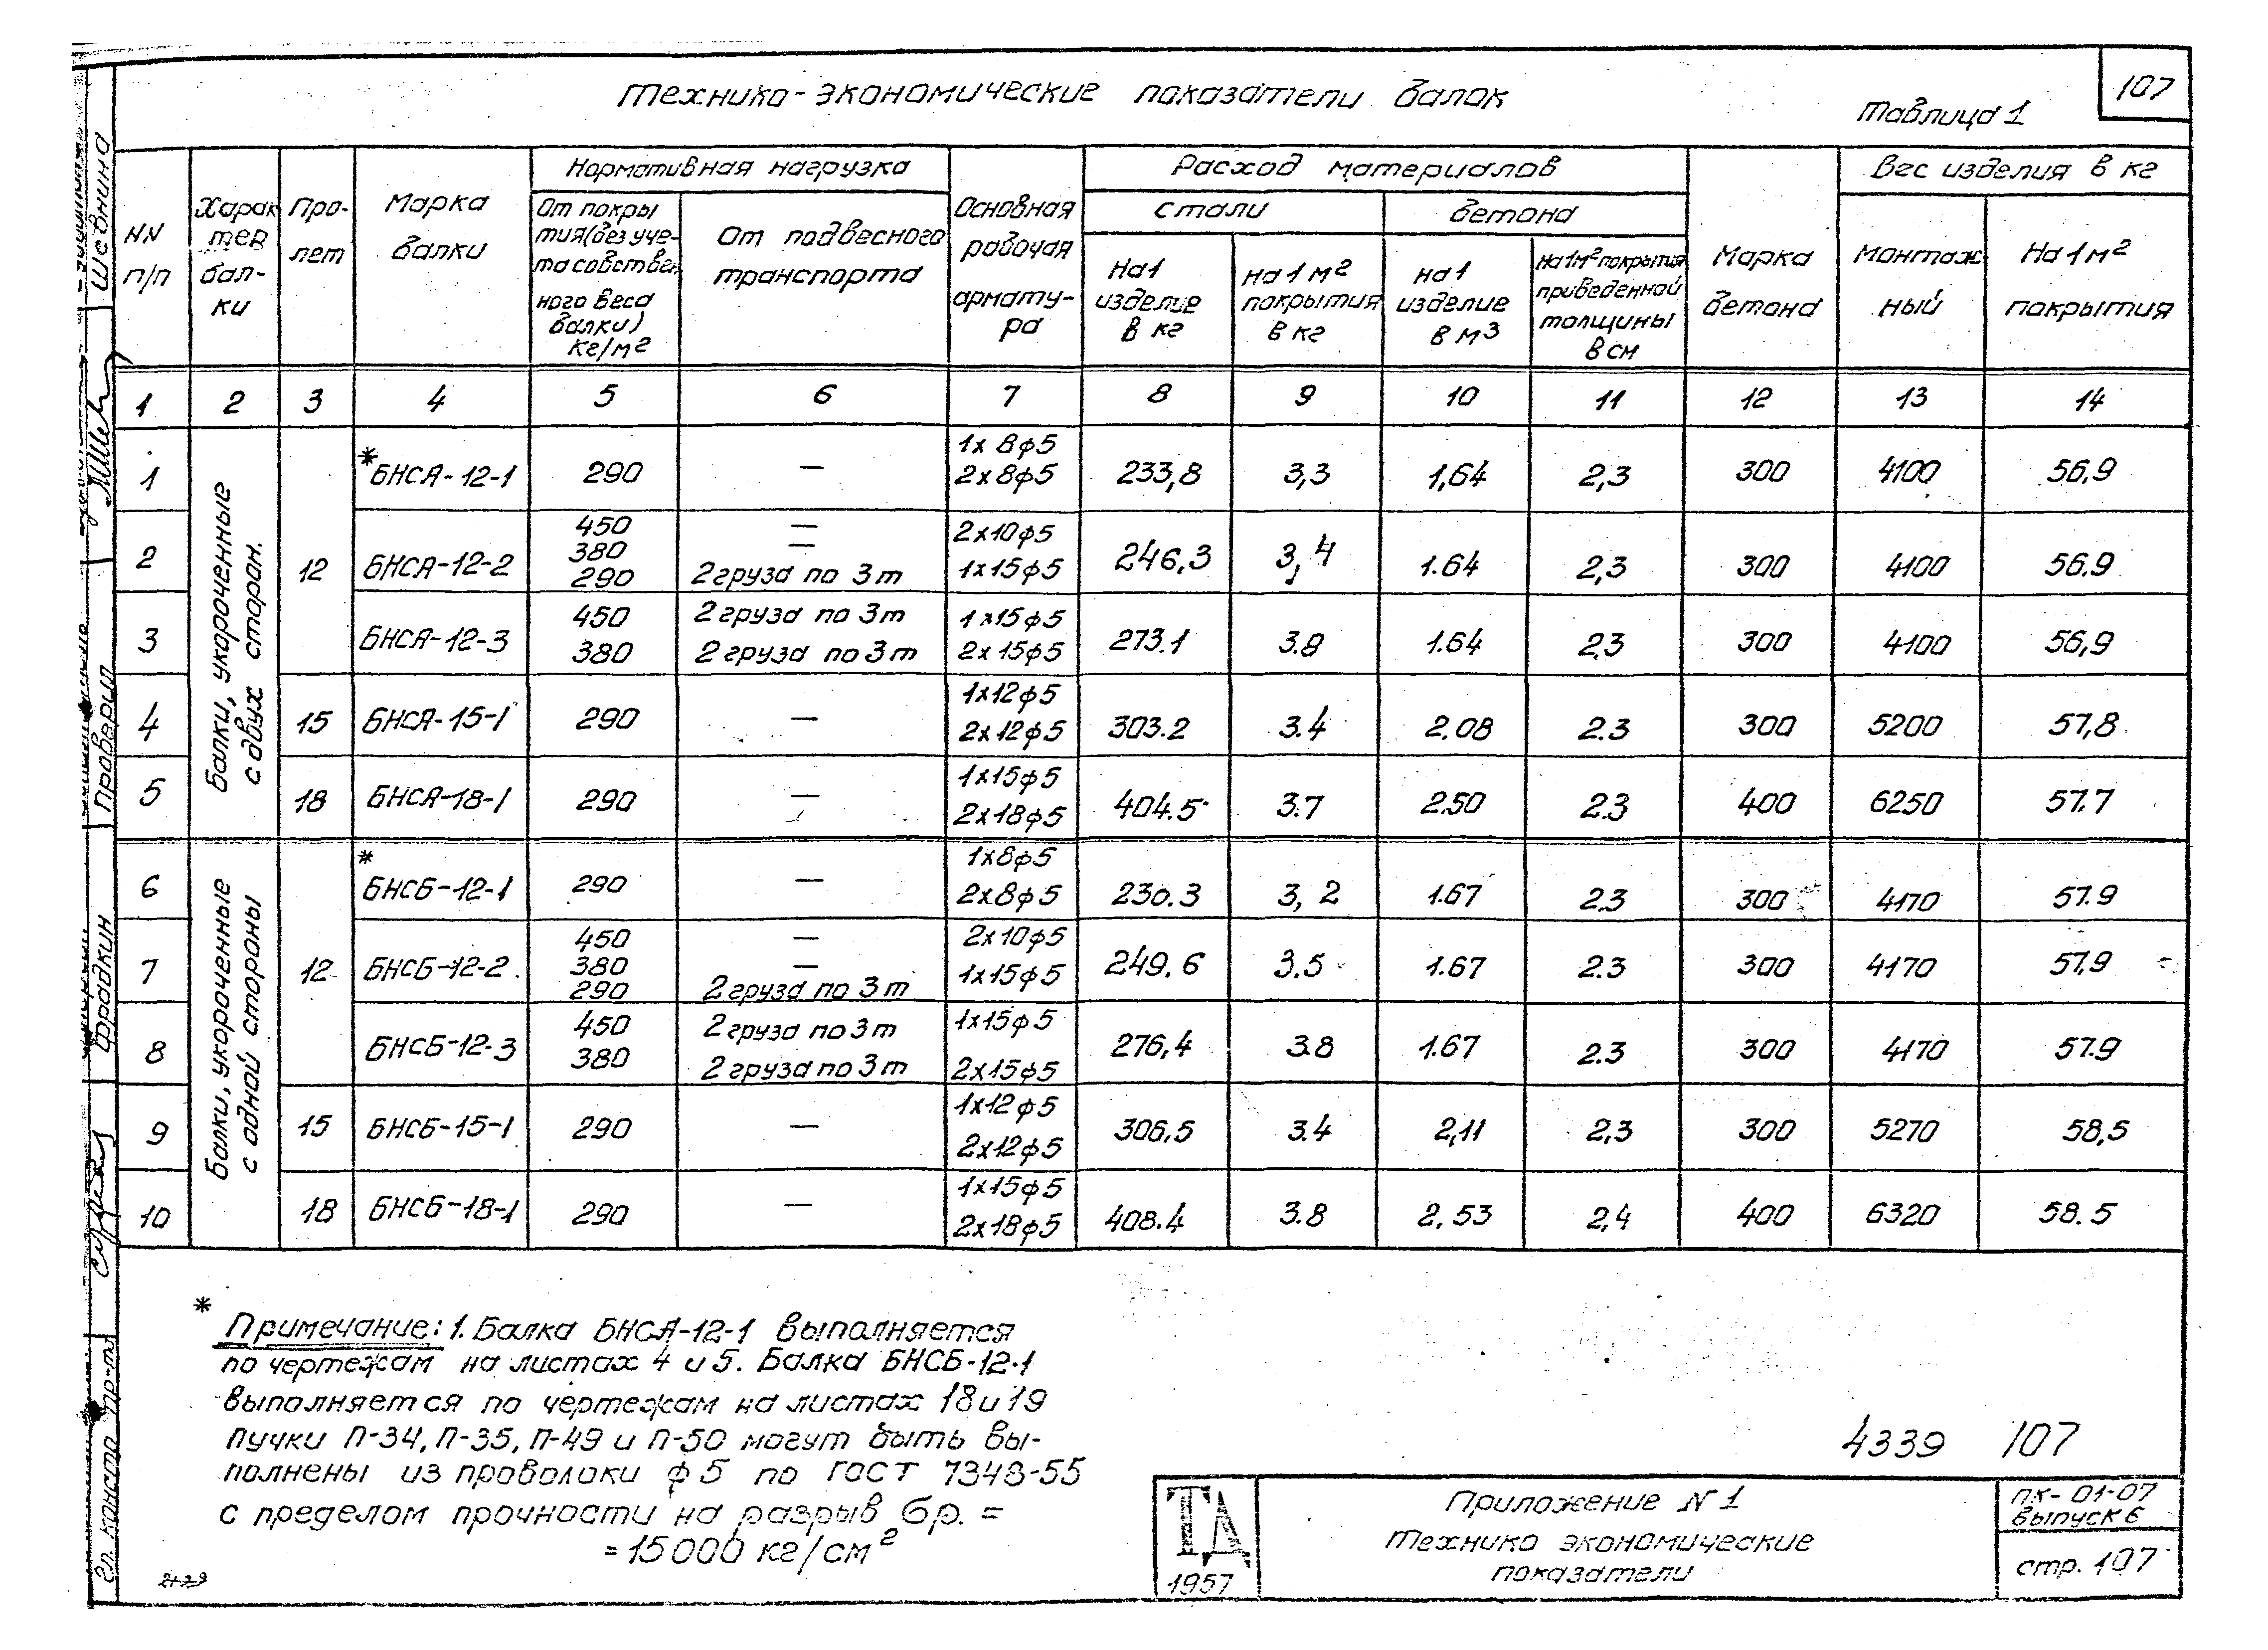 107
Технико-экономические показатели балок
Таблица 1
NN п/п | Харак тер бал- ки | Про- лет | Марка балки | Нормативная нагрузка | Основная рабочая армату- ра | Расход материалов | Марка бетона | Вес изделия в кг
От покры тия (без уче- та собствен ного веса балки) кг/м² | От подвесного транспорта | стали | бетона | Монтаж- ный | На 1 м² покрытия
На 1 изделие в кг | на 1 м² покрытия в кг | на 1 изделие в м³ | На 1м² покрытия приведенной толщины в см
1 | 2 | 3 | 4 | 5 | 6 | 7 | 8 | 9 | 10 | 11 | 12 | 13 | 14
Балки, укороченные с двух сторон.
1 | 12 | * БНСА-12-1 | 290 | — | 1x8ф5 2x8ф5 | 233,8 | 3,3 | 1,64 | 2,3 | 300 | 4100 | 56,9
2 | БНСА-12-2 | 450 380 290 | — — 2 груза по 3т | 2x10ф5 1x15ф5 | 246,3 | 3,4 | 1.64 | 2,3 | 300 | 4100 | 56.9
3 | БНСА-12-3 | 450 380 | 2 груза по 3т 2 груза по 3т | 1x15ф5 2x15ф5 | 273.1 | 3.8 | 1.64 | 2.3 | 300 | 4100 | 56,9
4 | 15 | БНСА-15-1 | 290 | — | 1x12ф5 2x12ф5 | 303.2 | 3.4 | 2.08 | 2.3 | 300 | 5200 | 57,8
5 | 18 | БНСА-18-1 | 290 | — | 1x15ф5 2x18ф5 | 404.5 | 3.7 | 2.50 | 2.3 | 400 | 6250 | 57.7
Балки, укороченные с одной стороны
6 | 12 | * БНСБ-12-1 | 290 | — | 1x8ф5 2x8ф5 | 230.3 | 3,2 | 1.67 | 2.3 | 300 | 4170 | 57.9
7 | БНСБ-12-2 | 450 380 290 | — — 2 груза по 3т | 2x10ф5 1x15ф5 | 249.6 | 3.5 | 1.67 | 2.3 | 300 | 4170 | 57.9
8 | БНСБ-12-3 | 450 380 | 2 груза по 3т 2 груза по 3т | 1x15ф5 2x15ф5 | 276,4 | 3.8 | 1.67 | 2.3 | 300 | 4170 | 57.9
9 | 15 | БНСБ-15-1 | 290 | — | 1x12ф5 2x12ф5 | 306,5 | 3.4 | 2,11 | 2,3 | 300 | 5270 | 58,5
10 | 18 | БНСБ-18-1 | 290 | — | 1x15ф5 2x18ф5 | 408.4 | 3.8 | 2,53 | 2,4 | 400 | 6320 | 58.5
* Примечание: 1. Балка БНСА-12-1 выполняется
по чертежам на листах 4 и 5. Балка БНСБ-12-1
выполняется по чертежам на листах 18 и 19
Пучки П-34, П-35, П-49 и П-50 могут быть вы-
полнены из проволоки ф5 по ГОСТ 7348-55
с пределом прочности на разрыв бр. =
= 15000 кг/см²
4339 107
ТД
1957
Приложение N 1
Технико экономические
показатели
ПК-01-07
выпуск 6
стр. 107
Шевнина
Проверил
Фрадкин
Гл. констр. пр-та